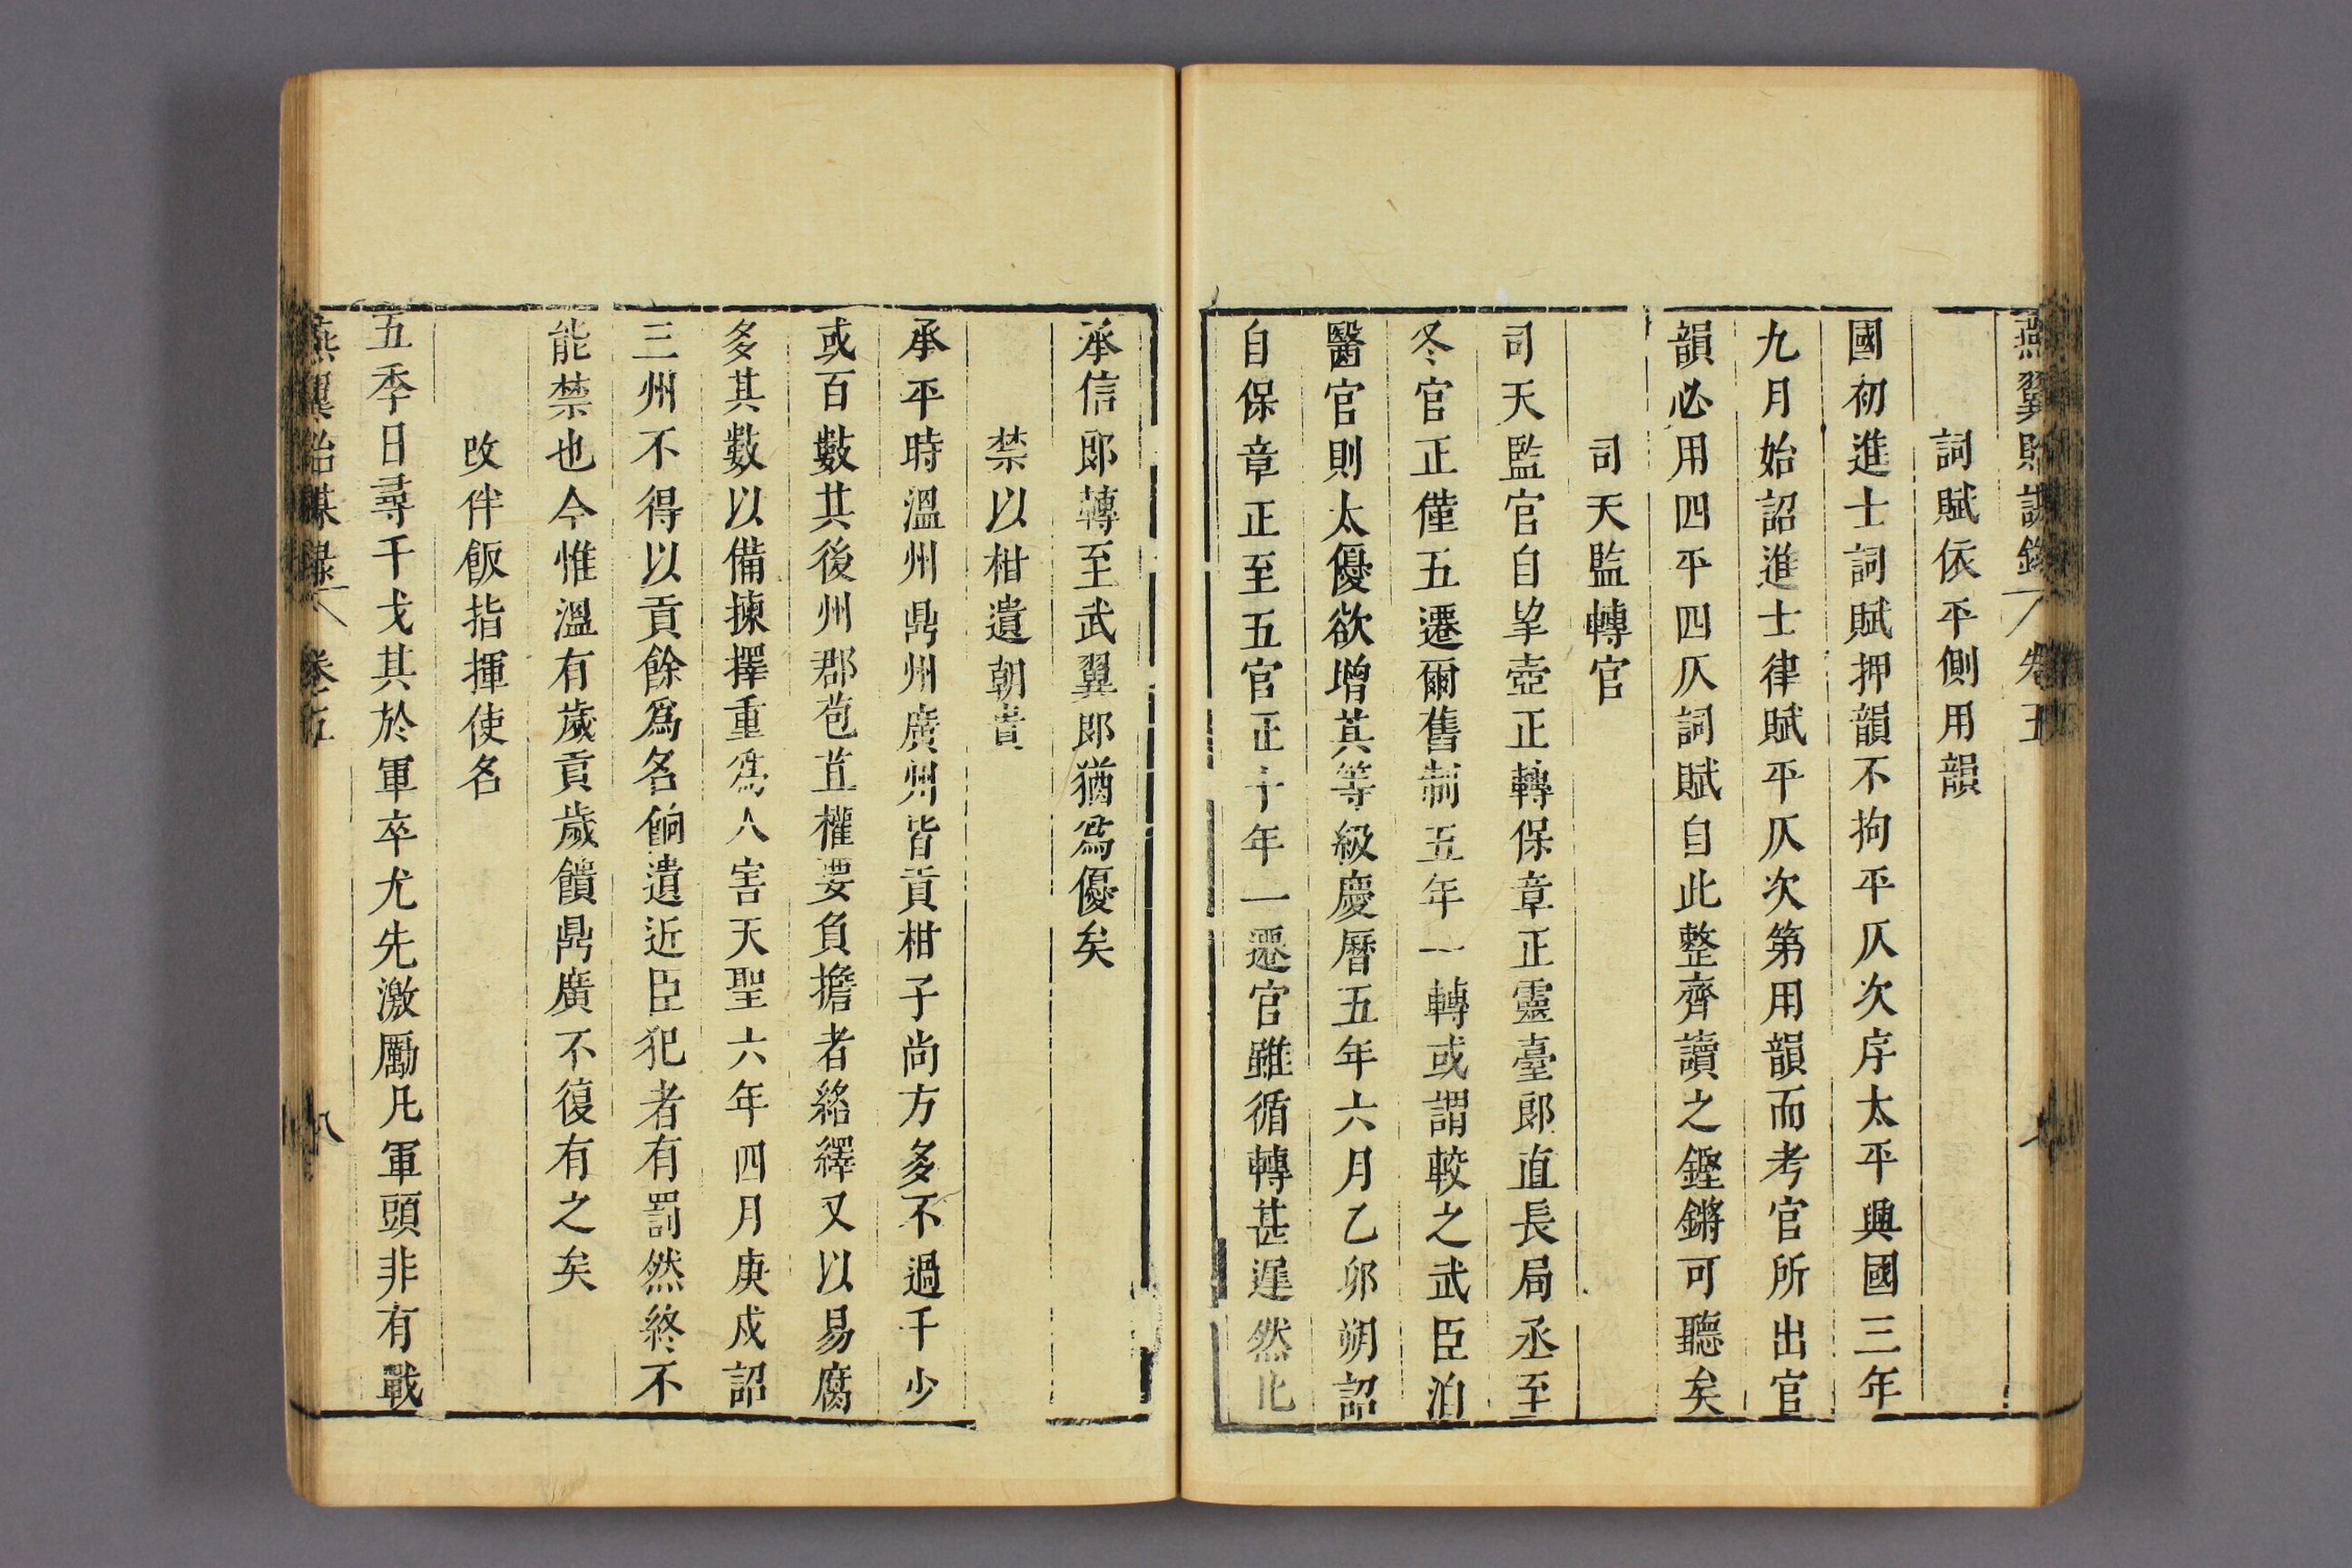 燕翼貽謀錄 卷五
詞賦依平側用韻
國初進士詞賦押韻不拘平仄次序太平興國三年
九月始詔進士律賦平仄次第用韻而考官所出官
韻必用四平四仄詞賦自此整齊讀之鏗鏘可聽矣
司天監轉官
司天監官自挈壺正轉保章正靈臺郎直長局丞至
冬官正僅五遷爾舊制五年一轉或謂較之武臣洎
醫官則太優欲增其等級慶曆五年六月乙卯朔詔
自保章正至五官正十年一遷官雖循轉甚遲然比
承信郎轉至武翼郎猶爲優矣
禁以柑遺朝貴
承平時溫州鼎州廣州皆貢柑子尚方多不過千少
或百數其後州郡苞苴權要負擔者絡繹又以易腐
多其數以備揀擇重爲人害天聖六年四月庚戌詔
三州不得以貢餘爲名餉遺近臣犯者有罰然終不
能禁也今惟溫有歲貢歲饋鼎廣不復有之矣
改伴飯指揮使名
五季日尋干戈其於軍卒尤先激勵凡軍頭非有戰
燕翼貽謀錄 卷五 八